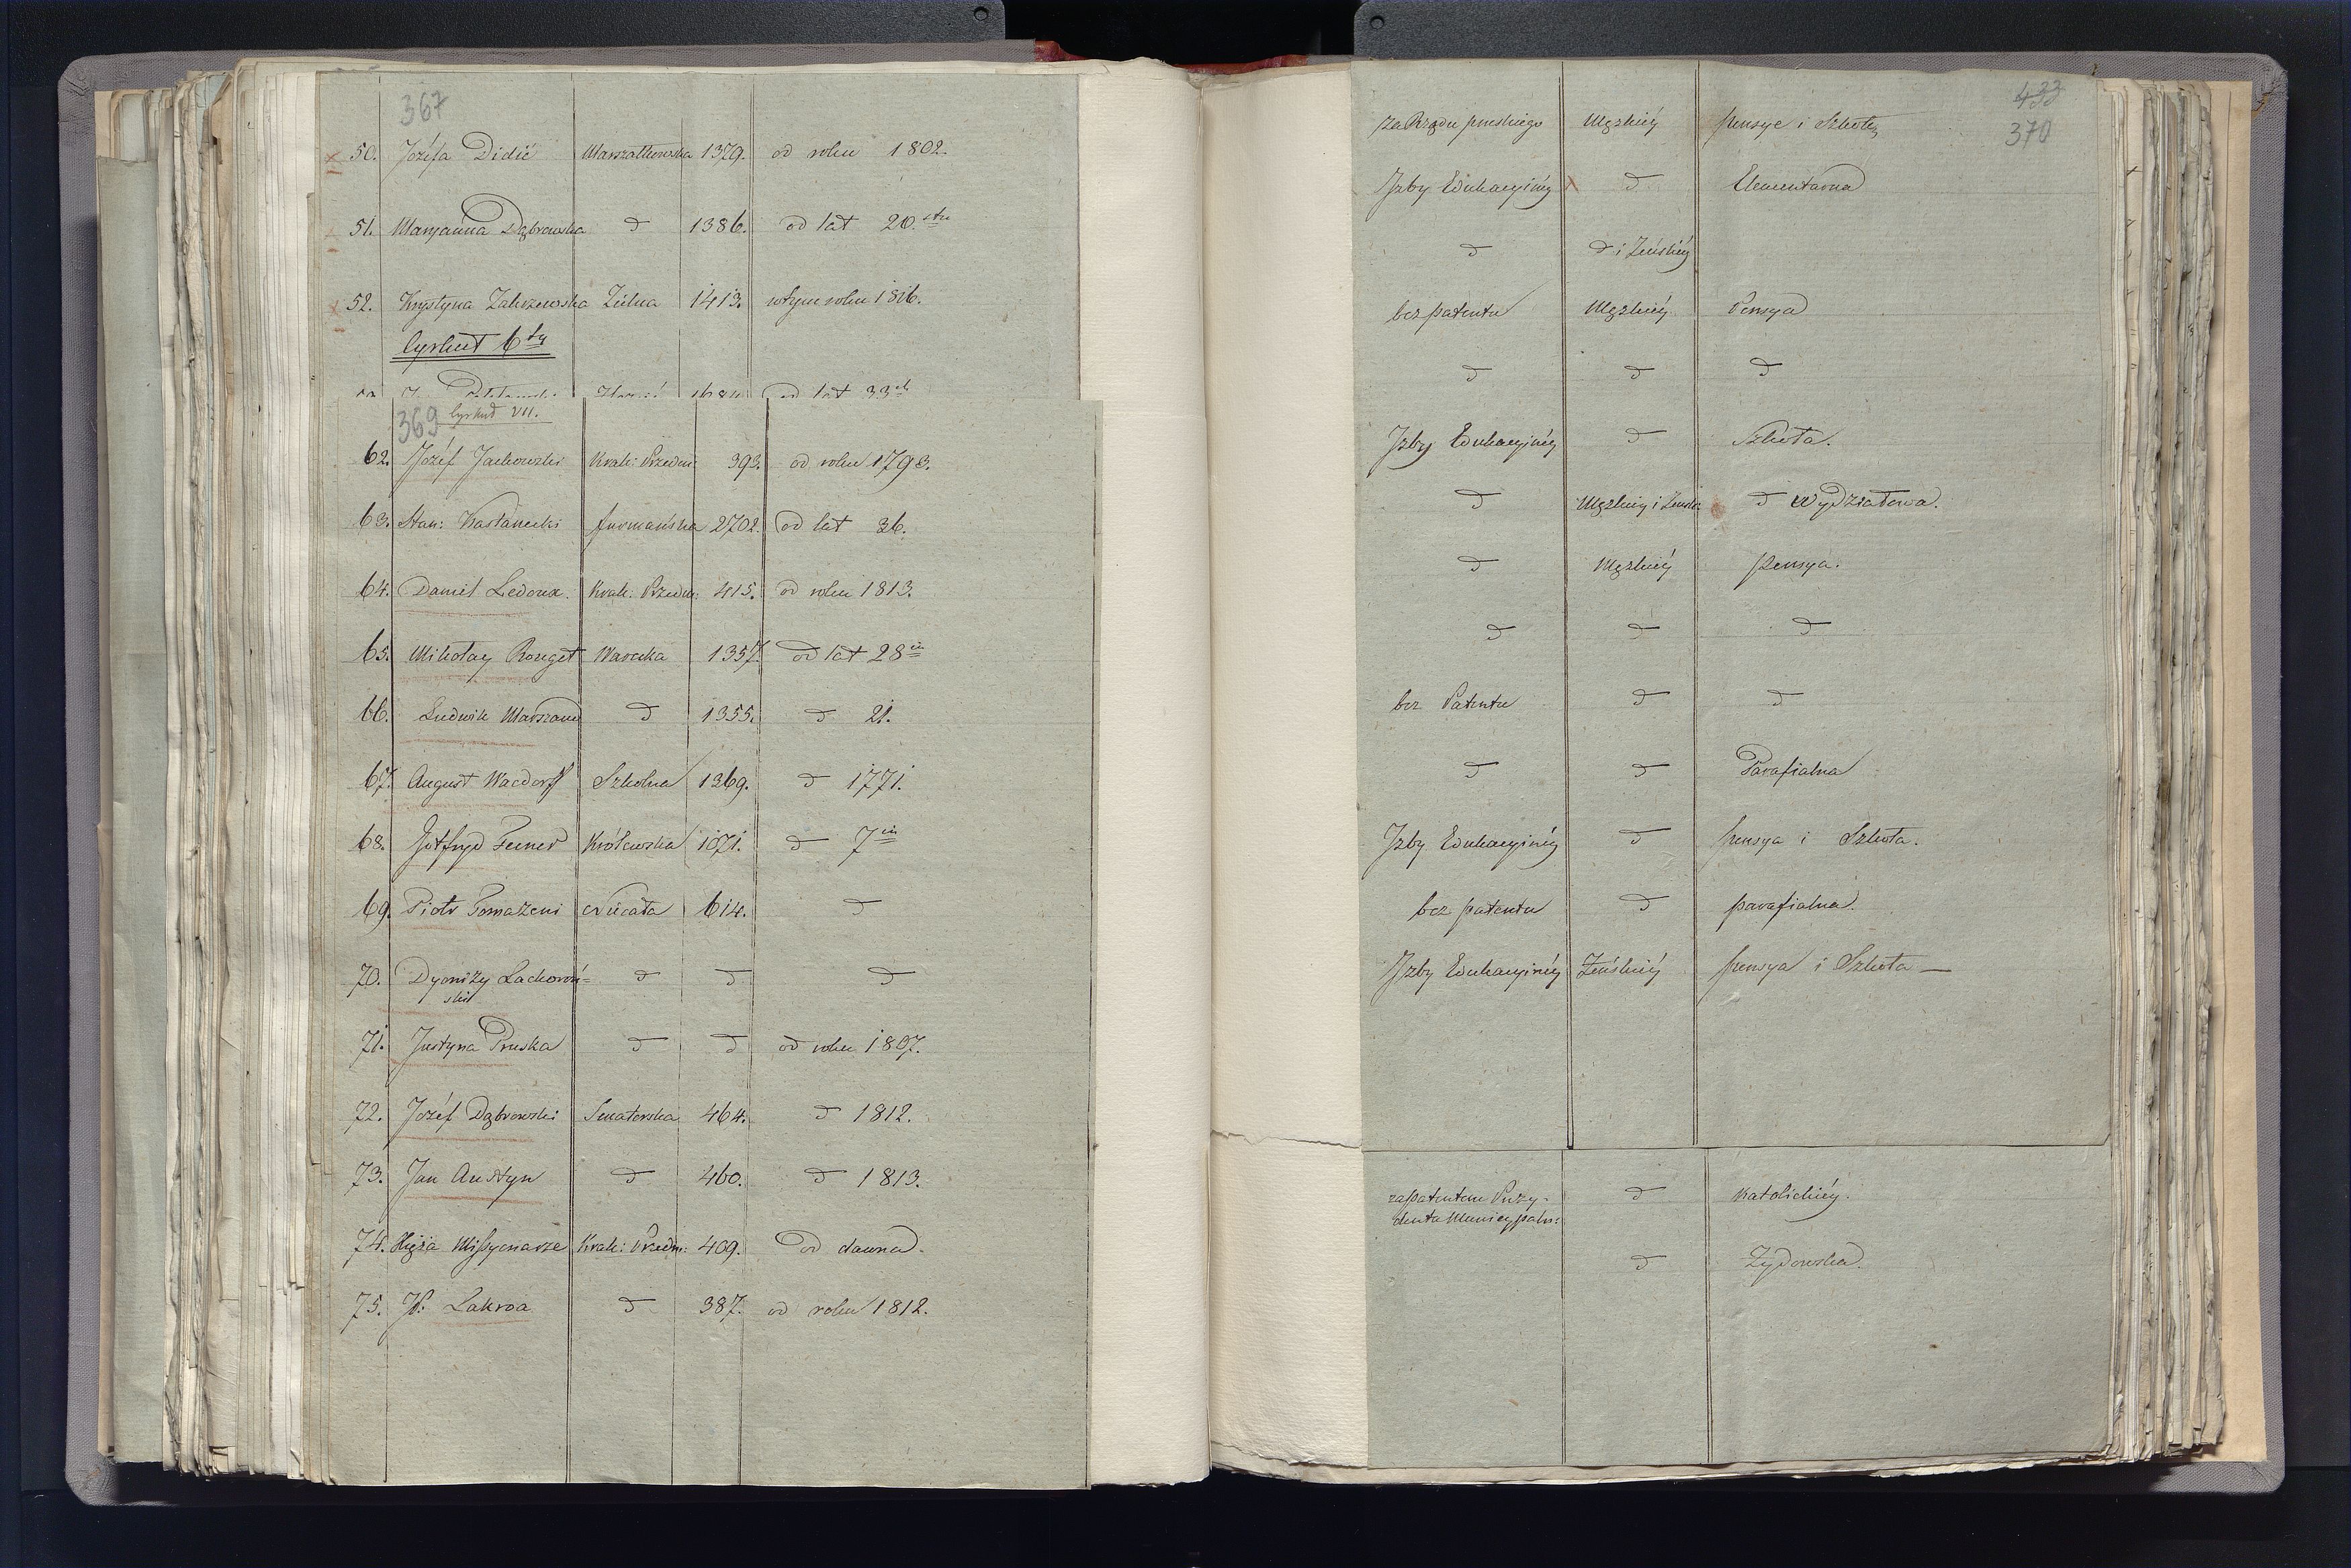 367
50. Józefa Didié Marszałkowska 1379. od roku 1802.
51. Maryanna Dąbrowska d 1386. od lat 20.stu
52. Krystyna Zakrzewska Zielna 1413. w tym roku 1816.
Cyrkuł 6ty
od lat 33ch
369 Cyrkuł VII.
62. Józef Jachowski Krak: Przedm: 393. od roku 1793.
63. Stan: Kasztanecki furmańska 2702. od lat 36.
64. Daniel Ledoux. Krak: Przedm: 415. od roku 1813.
65. Mikołay Rouget Warecka 1357. od lat 28iu
66. Ludwik Marszand d 1355. d 21.
67. August Wacdorff Szkolna 1369. d 1771.
68. Gotfryd Feiner Królewska 1071. d 7iu
69. Piotr Tomażeni Niecała 614. d
70. Dyonizy Lachowiń=
ski d d d
71. Justyna Pruska d d od roku 1807.
72. Józef Dąbrowski Senatorska 464. d 1812.
73. Jan Austyn d 460. d 1813.
74. Xięża Missyonarze Krak: Przedm: 409. Od dawna.
75. JP: Lakroa d 387. od roku 1812.
433
370
za Rządu pruskiego Męzkiéy pensye i Szkołę
Izby Edukacyinéy d Elementarna
d d i Żeńskiéy
bez patentu Męzkiéy Pensya
d d d
Izby Edukacyinéy d Szkoła.
d Męzkiéy i Żeńskiéy d Wydziałowa.
d Męzkiéy pensya.
d d d
bez Patentu d d
d d Parafialna
Izby Edukacyinéy d pensya i Szkoła.
bez patentu d parafialna.
Izby Edukacyinéy Żeńskiéy pensya i Szkoła —
za patentem Prezy-
denta Municypaln: d Katolickiéy.
d Żydowska.